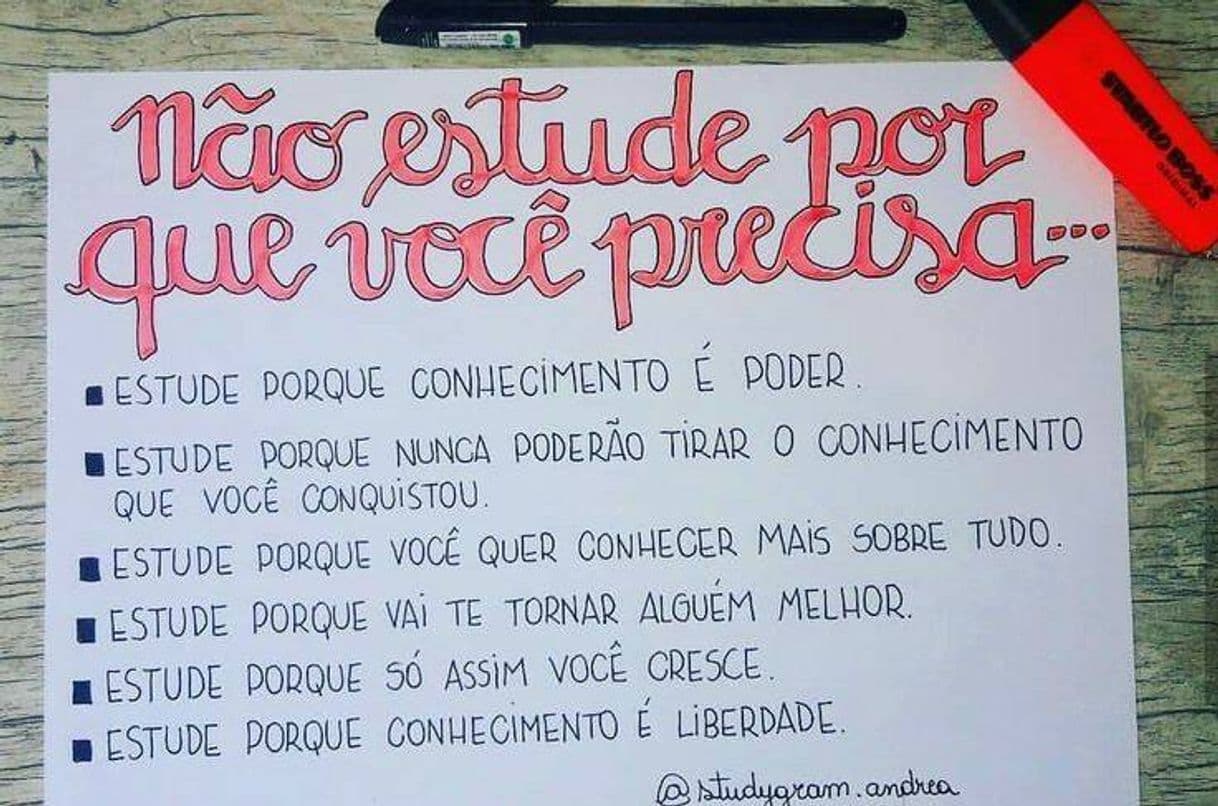 não estude por
que você precisa...
■ ESTUDE PORQUE CONHECIMENTO É PODER.
■ ESTUDE PORQUE NUNCA PODERÃO TIRAR O CONHECIMENTO
QUE VOCÊ CONQUISTOU.
■ ESTUDE PORQUE VOCÊ QUER CONHECER MAIS SOBRE TUDO.
■ ESTUDE PORQUE VAI TE TORNAR ALGUÉM MELHOR.
■ ESTUDE PORQUE SÓ ASSIM VOCÊ CRESCE.
■ ESTUDE PORQUE CONHECIMENTO É LIBERDADE.
@studygram.andrea
STABILO BOSS
ORIGINAL